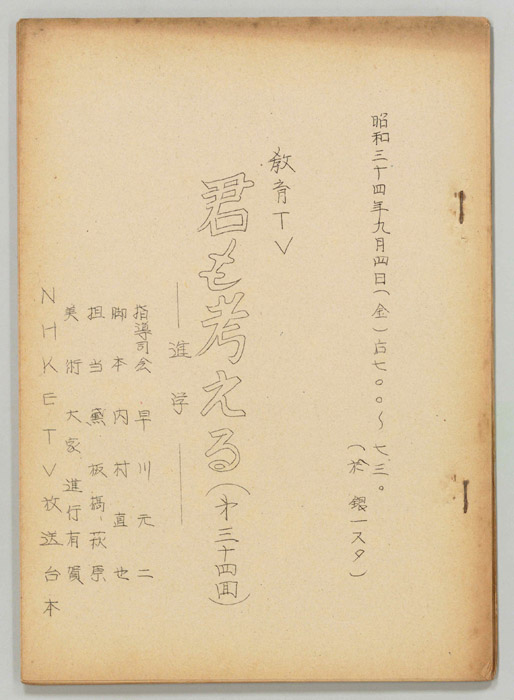 昭和三十四年九月四日(金)后七.〇〇〜七.三〇
(於 銀一スタ)
教育TV
君も考える(才三十四回)
――進学――
指導司会 早川元二
脚本 内村直也
担当 熊、板橋、萩原
美術 大家 進行 有賀
NHKETV放送台本